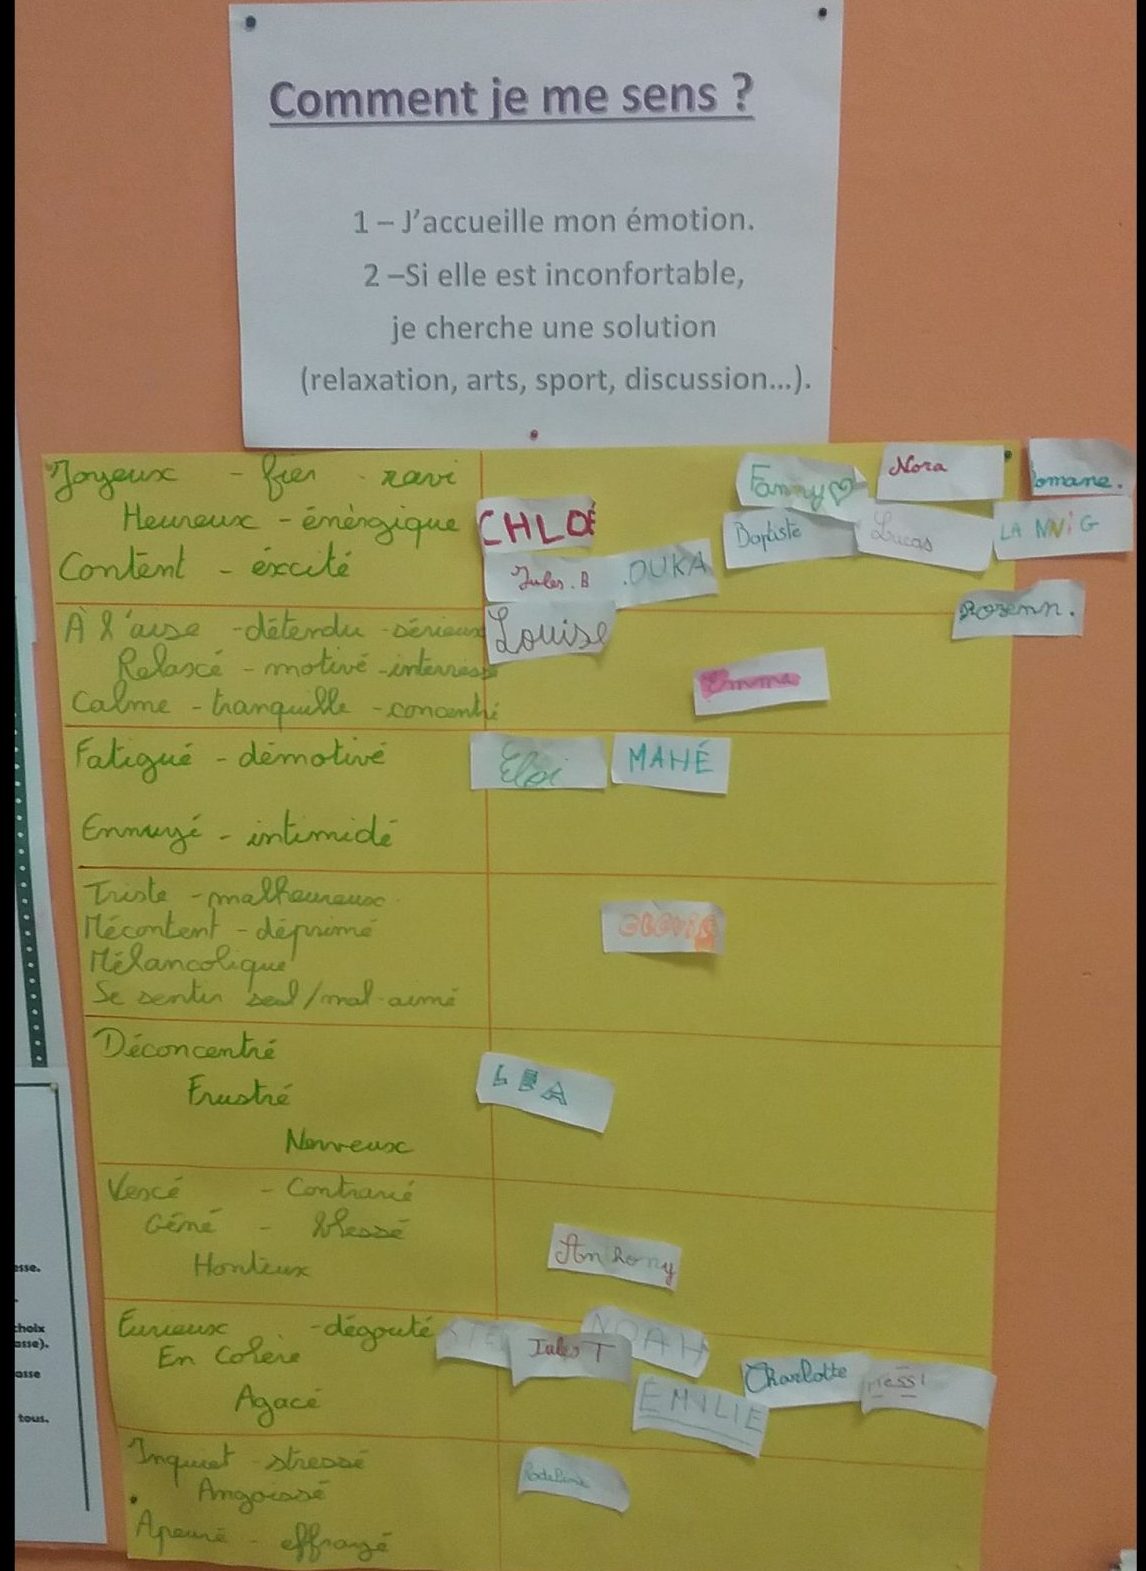 Comment je me sens ?
1 – J'accueille mon émotion.
2 –Si elle est inconfortable,
je cherche une solution
(relaxation, arts, sport, discussion...).
Joyeux - fier - ravi
Heureux - énérgique
Content - éxcité
Fanny
Nora
omane.
CHLOÉ
Baptiste
Lucas
LA NNiG
Jules.B
.OUKA
À l'aise - détendu - sérieux
Relaxé - motivé - interressé
Calme - tranquille - concentré
Louise
Rozenn.
Emma
Fatigué - démotivé
Ennuyé - intimidé
Eloi
MAHÉ
Triste - malheureux
Mécontent - déprimé
Mélancolique
Se sentir seul/mal-aimé
CLOVIS
Déconcentré
Frustré
Nerveux
LEA
Vexé - Contrarié
Géné - blessé
Honteux
Anthony
Furieux - dégouté
En Colère
Agacé
NOAH
Jules T
Charlotte
messi
EMILIE
Inquiet - stressé
Angoissé
Apeuré - effrayé
esse.
choix
asse).
asse
tous.